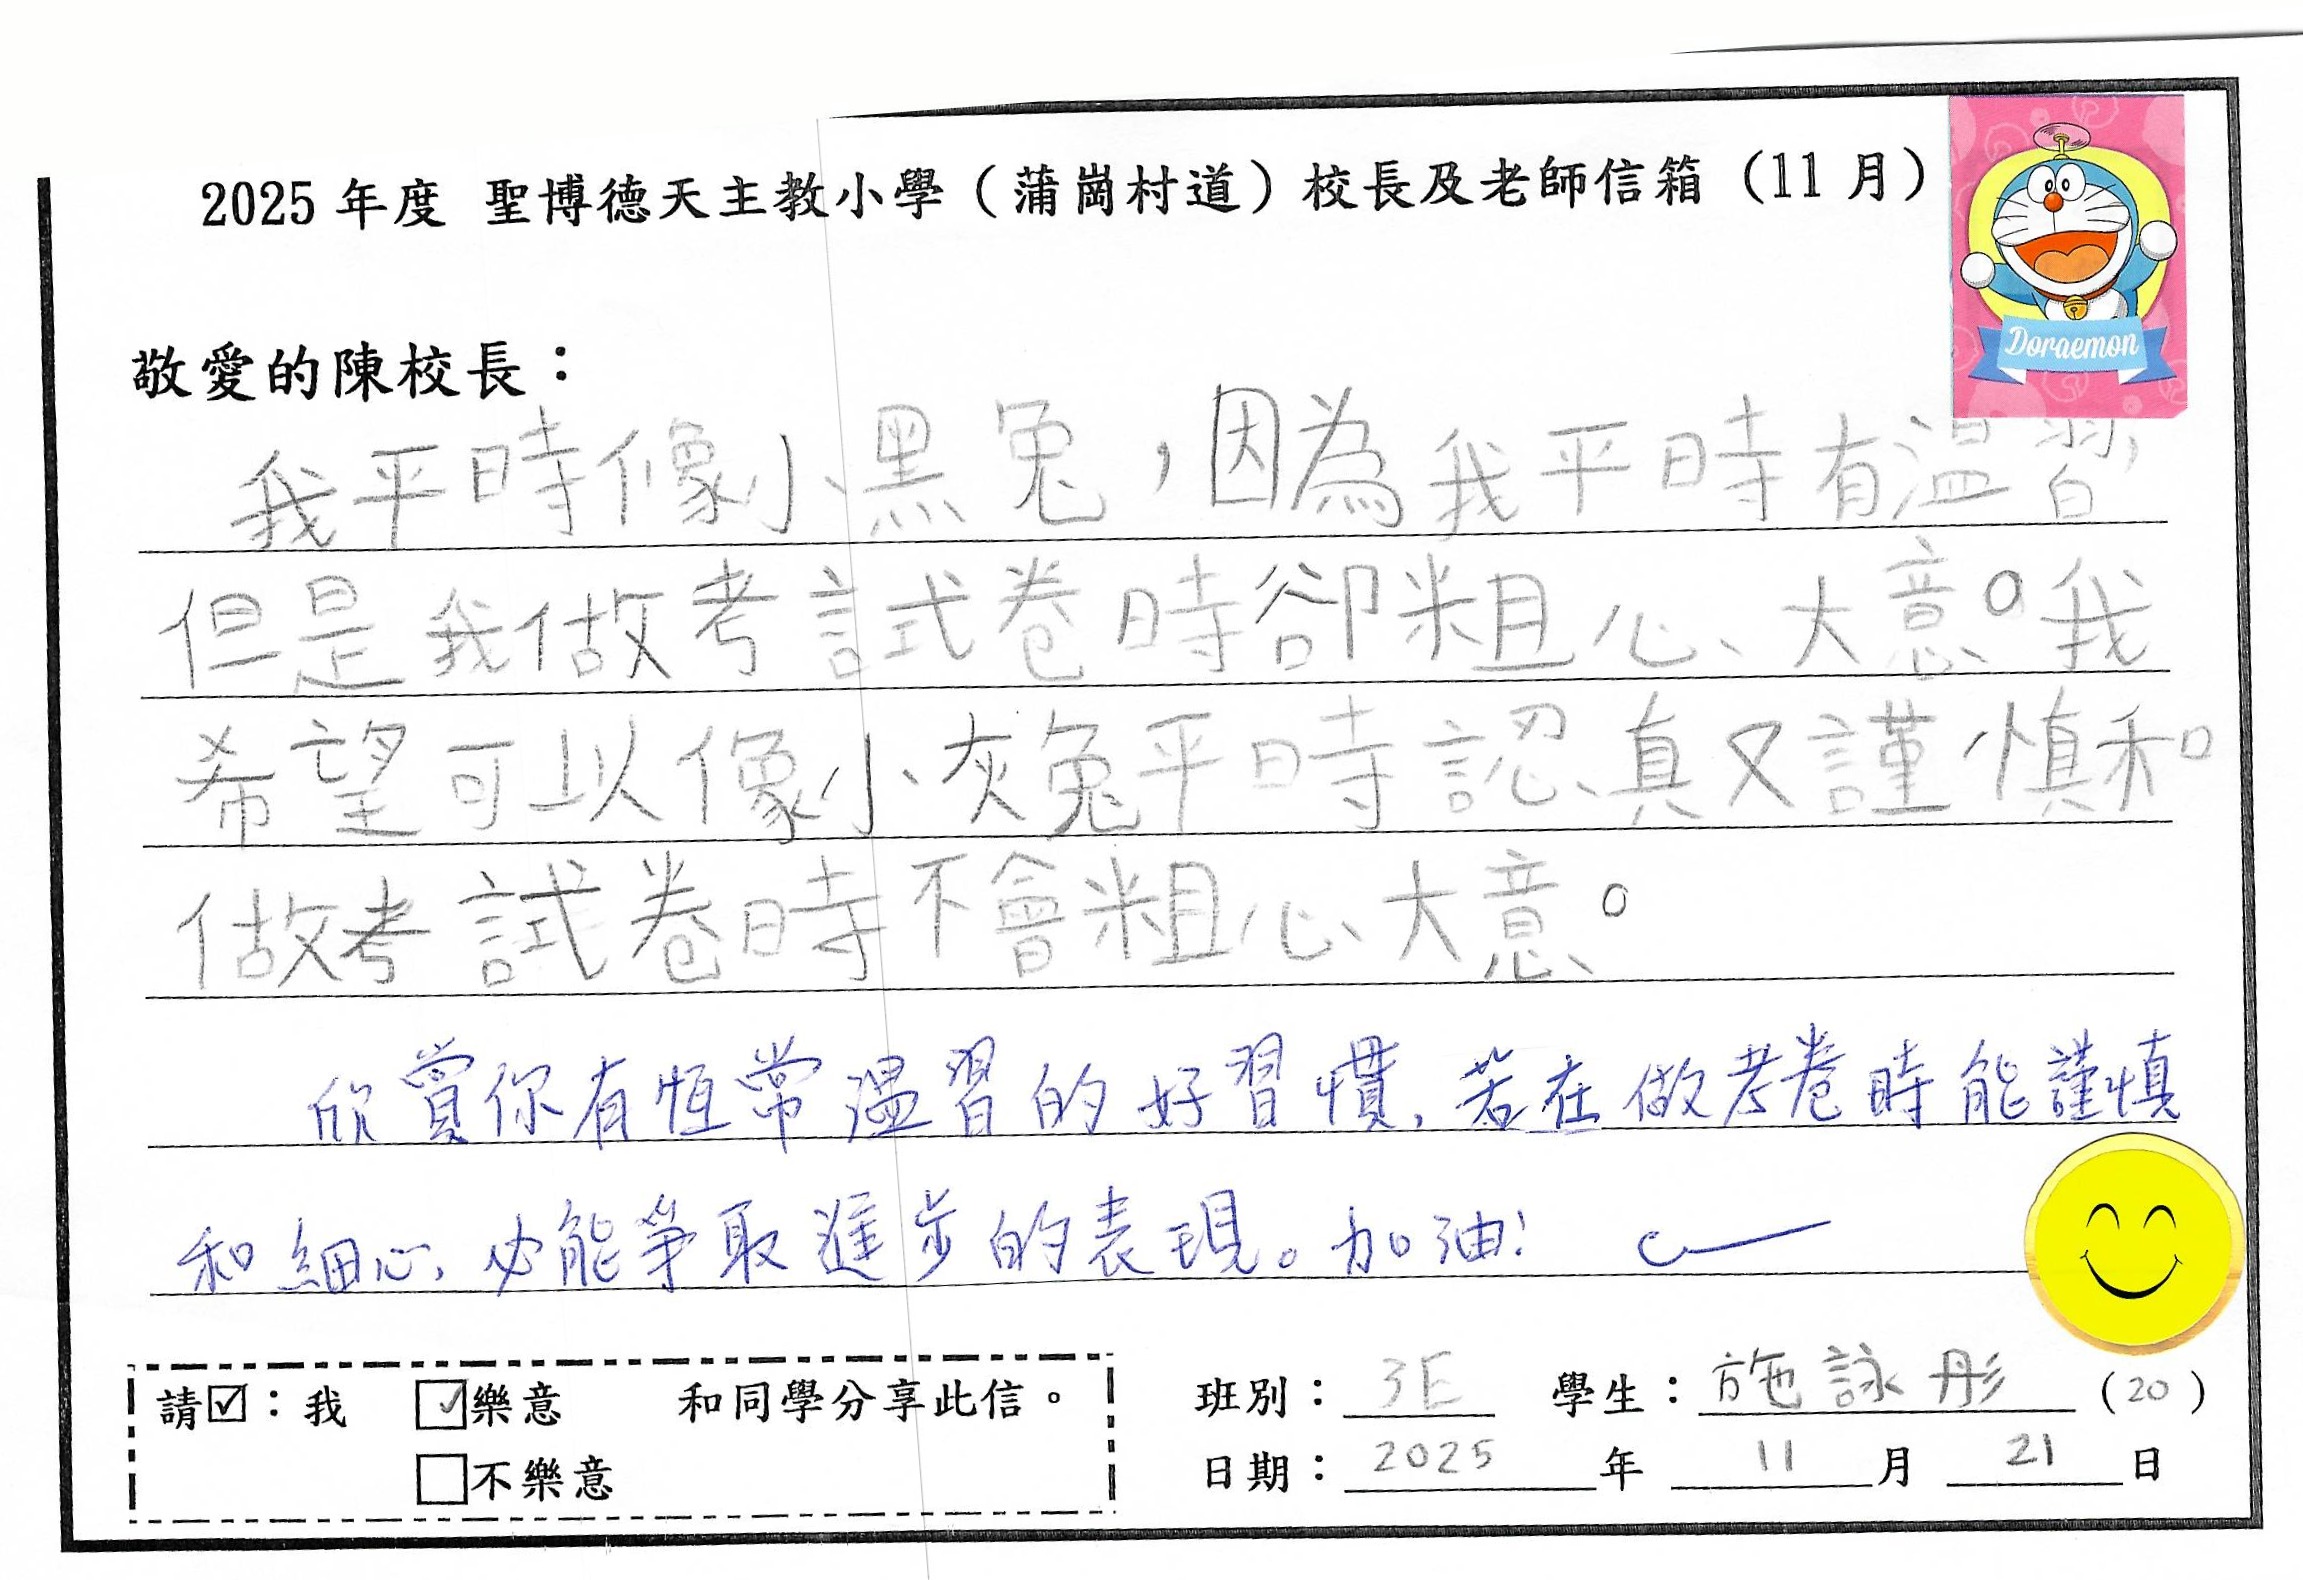 2025 年度 聖博德天主教小學（蒲崗村道）校長及老師信箱（11 月）
Doraemon
敬愛的陳校長：
我平時像小黑兔，因為我平時有溫習，
但是我做考試卷時卻粗心大意。我
希望可以像小灰兔平時認真又謹慎和
做考試卷時不會粗心大意。
欣賞你有恆常溫習的好習慣，若在做考卷時能謹慎
和細心，必能爭取進步的表現。加油！
請☑：我 ☑樂意 和同學分享此信。
□不樂意
班別：3E 學生：施詠彤（20）
日期：2025年 11月 21日